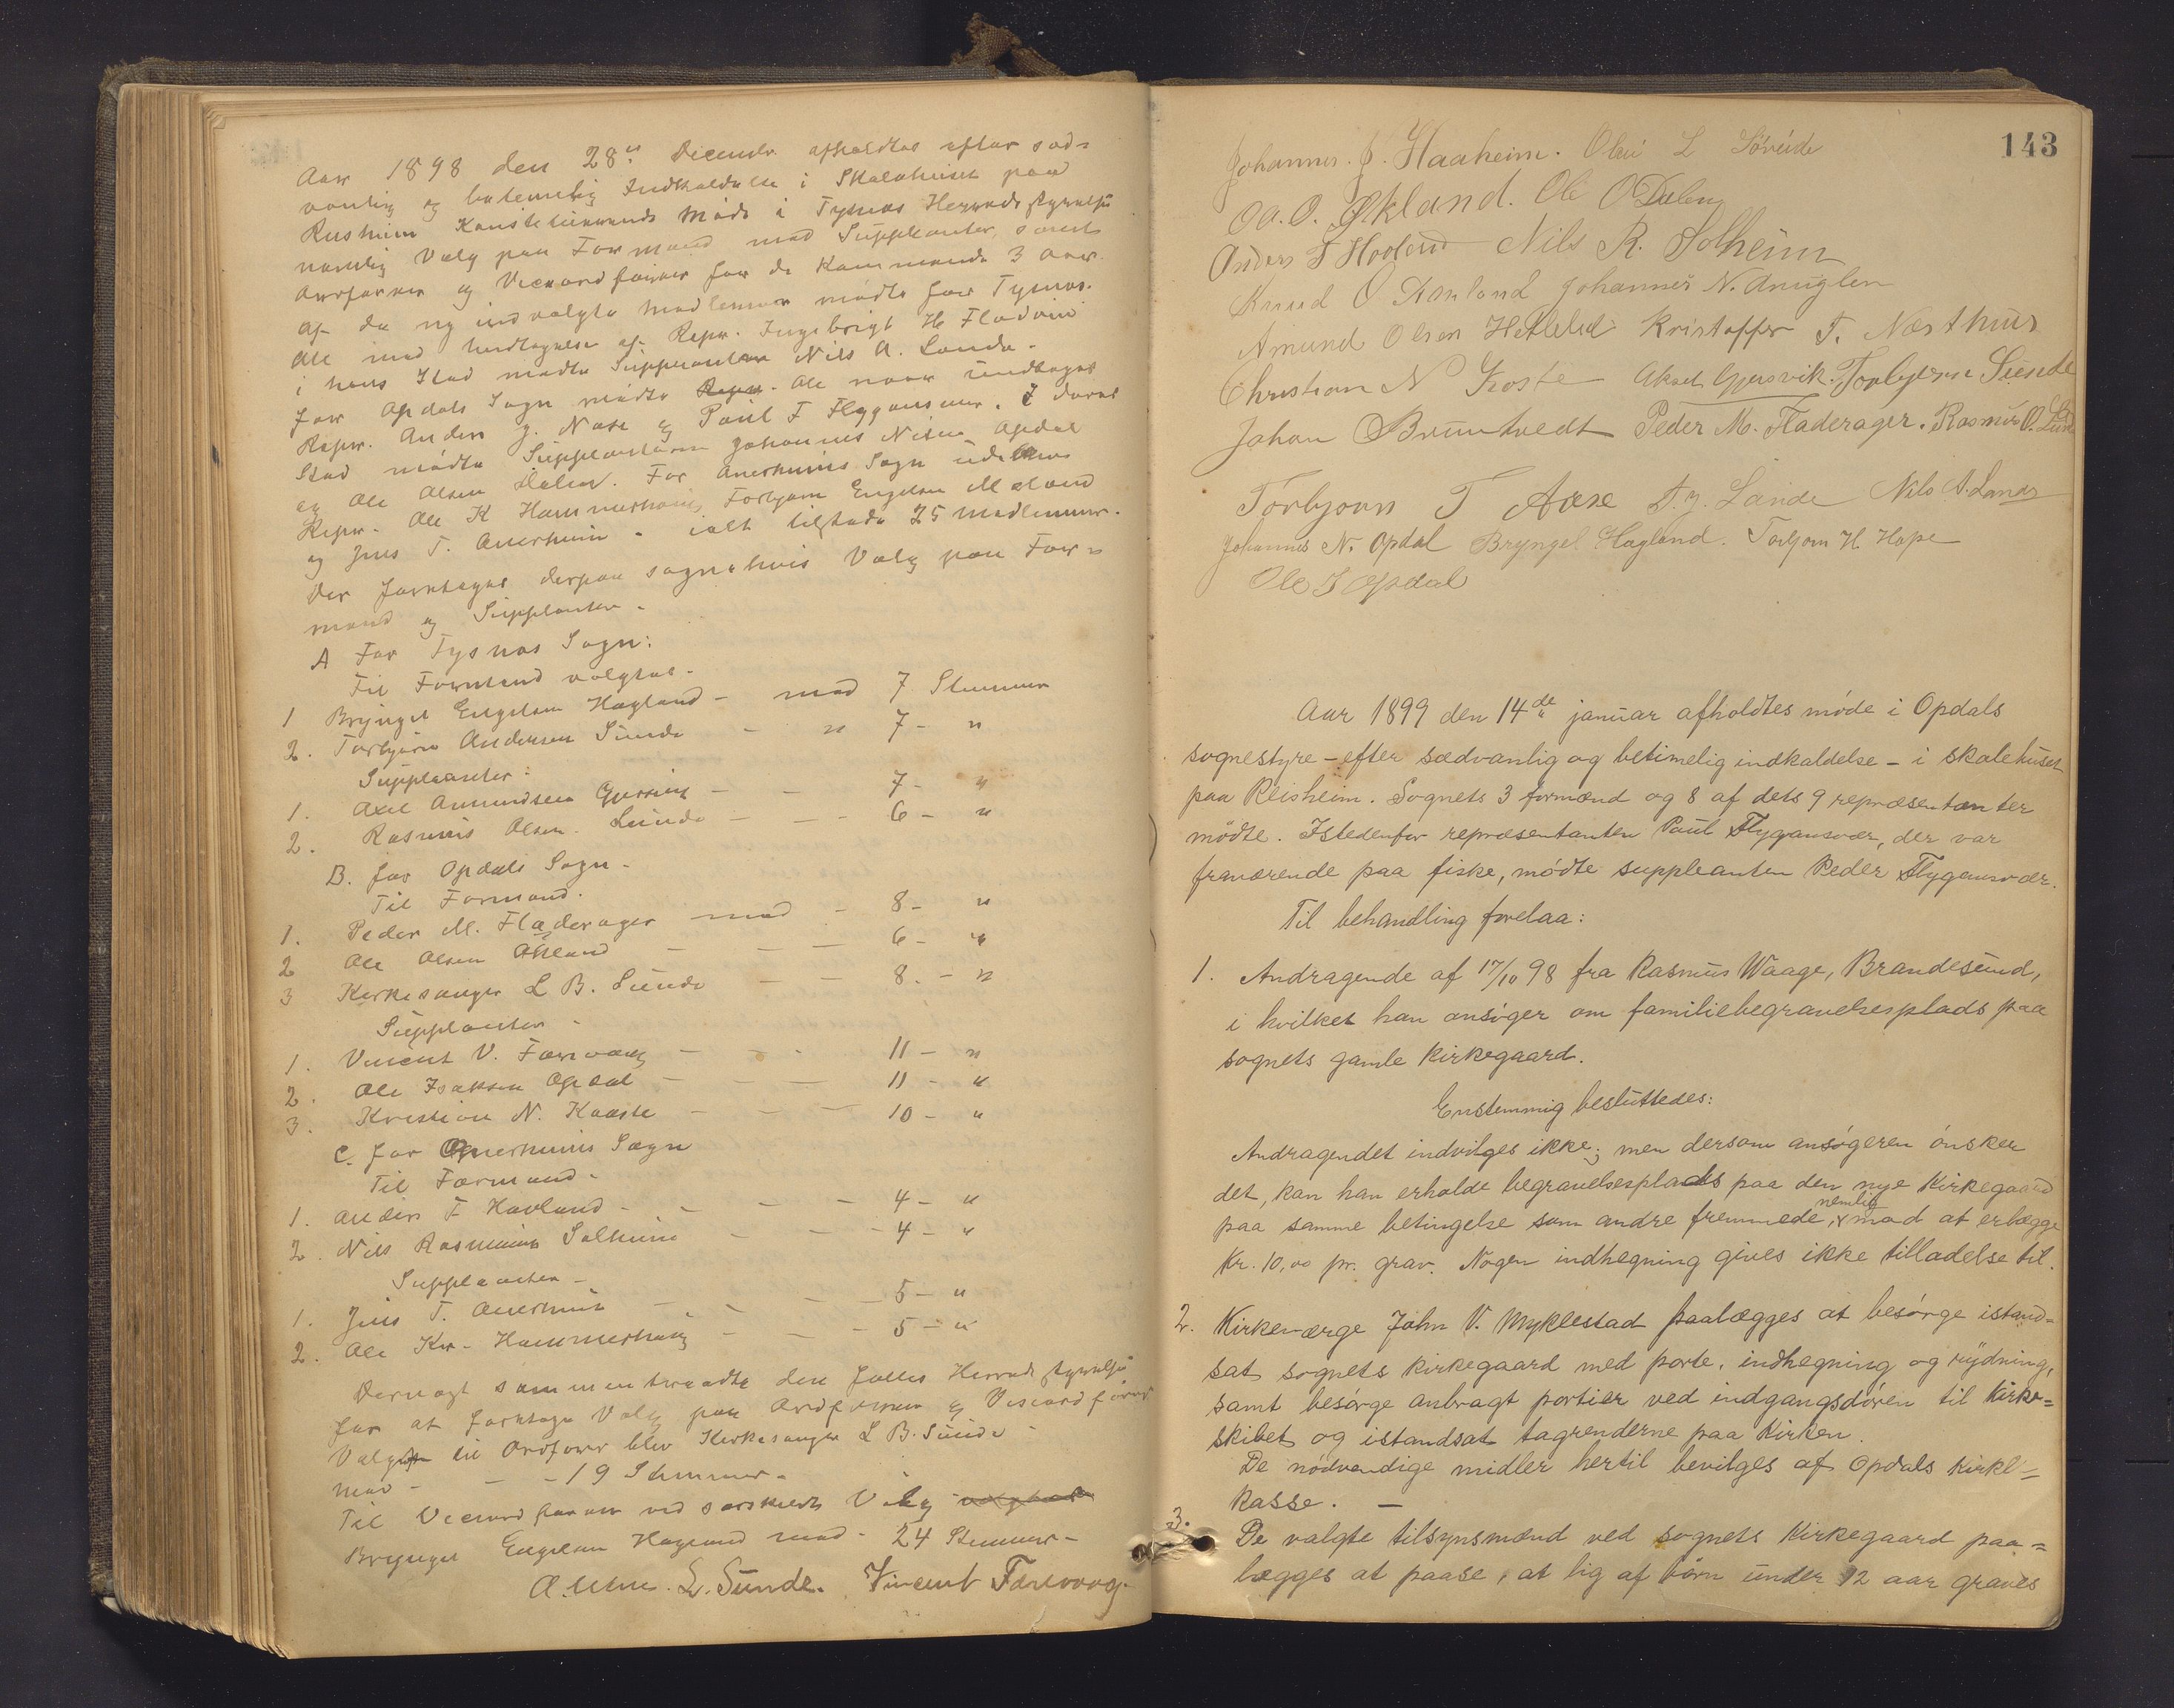 Aar 1898 den 28de Decembr. afholdtes efter sæd-
vanlig og betimelig Indkaldelse i Skolehuset paa
Reisheim Konstituerende Møde i Tysnes Herredsstyrelse
nemlig Valg paa Formænd med Suppleanter, samt
Ordfører og Viceordfører for de kommende 3 Aar.
Af de ny indvalgte Medlemmer mødte for Tysnes.
Alle med Undtagelse af Repr. Ingebrigt H. Fladvin
i hans Sted mødte Suppleanten Nils A. Lande.
For Opdals Sogn mødte Alle naar undtages
Repr. Anders J. Næse og Paul F Flygansvær. I deres
Sted mødte Suppleanterne Johannes Nilsen Opdal
og Ole Olsen Dalen. For Onerheims Sogn udeblev
Repr. Ole K Hammerhaug, Torbjørn Engelsen Meland
og Jens T. Onerheim. ialt tilstede 25 Medlemmer.
Der foretoges derpaa sognehvis Valg paa For-
mænd og Suppleanter.
A For Tysnes Sogn:
Til Formænd valgtes.
1 Brynjel Engelsen Hagland - med 7 Stemmer
2. Torbjørn Andersen Sunde - " 7 - "
Suppleanter:
1. Axel Amundsen Gjersvig - - 7 - "
2. Rasmus Olsen Lunde - - - 6 - "
B. for Opdals Sogn.
Til Formænd.
1. Peder M. Fladerager med - 8 - "
2 Ole Olsen Økland - - - 6 - "
3 Kirkesanger L B. Sunde - - 8. - "
Suppleanter -
1. Vincent V. Færevaag - - - 11 - "
2. Ole Isaksen Opdal - - - 11 - "
3. Kristian N. Kaaste - - - 10 - "
C. for Onerheims Sogn
Til Formænd.
1. Anders T Hovland - - - - 4 - "
2. Nils Rasmussen Solheim - - - 4 - "
Suppleanter -
1. Jens T. Onerheim - - - - 5 - "
2. Ole Kr. Hammerhaug - - - 5 - "
Dernæst sammentraadte den fælles Herredsstyrelse
for at foretage Valg paa Ordfører og Viceordfører
Valgt til Ordfører blev Kirkesanger L B. Sunde -
med - - - 19 Stemmer -
Til Viceordfører ved særskildt Valg valgtes
Brynjel Engelsen Hagland med - 24 Stemmer -
L. Sunde. Vincent Færevaag.
143
Johannes. J. Haaheim. Olai L Sørvide
O. O. Økland. Ole O Dalen
Anders T Hovland Nils R. Solheim
Knud O Johannes N. Anuglen
Amund Olsen Hetleled Kristoffer T. Næsthus
Christian N Koste Aksel Gjersvik. Torbjørn Sunde
Johan Bruntvedt Peder M. Fladerager. Rasmus O. Lunde
Torbjørn T Aase T. J. Lande Nils A. Lande
Johannes N. Opdal Bryngel Hagland. Torbjørn H Hope
Ole I Opdal
Aar 1899 den 14de januar afholdtes møde i Opdals
sognestyre - efter sædvanlig og betimelig indkaldelse - i skolehuset
paa Reisheim. Sognets 3 formænd og 8 af dets 9 repræsentanter
mødte. Istedenfor repræsentanten Paul Flygansvær, der var
fraværende paa fiske, mødte suppleanten Peder Flygansvær.
Til behandling forelaa:
1. Andragende af 17/10 98 fra Rasmus Waage, Brandesund,
i hvilket han ansøger om familiebegravelsesplads paa
sognets gamle kirkegaard.
Enstemmig besluttedes:
Andragendet indvilges ikke; men dersom ansøgeren ønsker
det, kan han erholde begravelsesplads paa den nye kirkegaard
paa samme betingelse som andre fremmede, nemlig mod at erlægge
Kr. 10,00 pr. grav. Nogen indhegning gives ikke tilladelse til.
2. Kirkeværge John V. Myklestad paalægges at besørge istand-
sat sognets kirkegaard med porte, indhegning og rydning,
samt besørge anbragt portier ved indgangsdøren til kirke-
skibet og istandsat tagrenderne paa kirken.
De nødvendige midler hertil bevilges af Opdals kirke-
kasse. -
3. De valgte tilsynsmænd ved sognets kirkegaard paa-
lægges at paase, at lig af børn under 12 aar graves